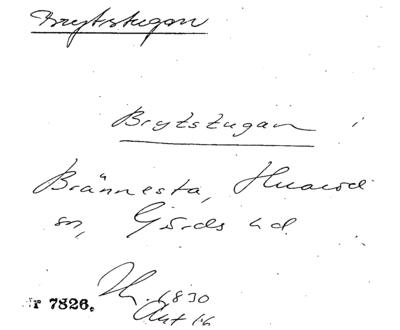 Brytstugan
Brytstugan i
Brännesta, Huaröd
sn, Gärds hd.
1830
r 7826.